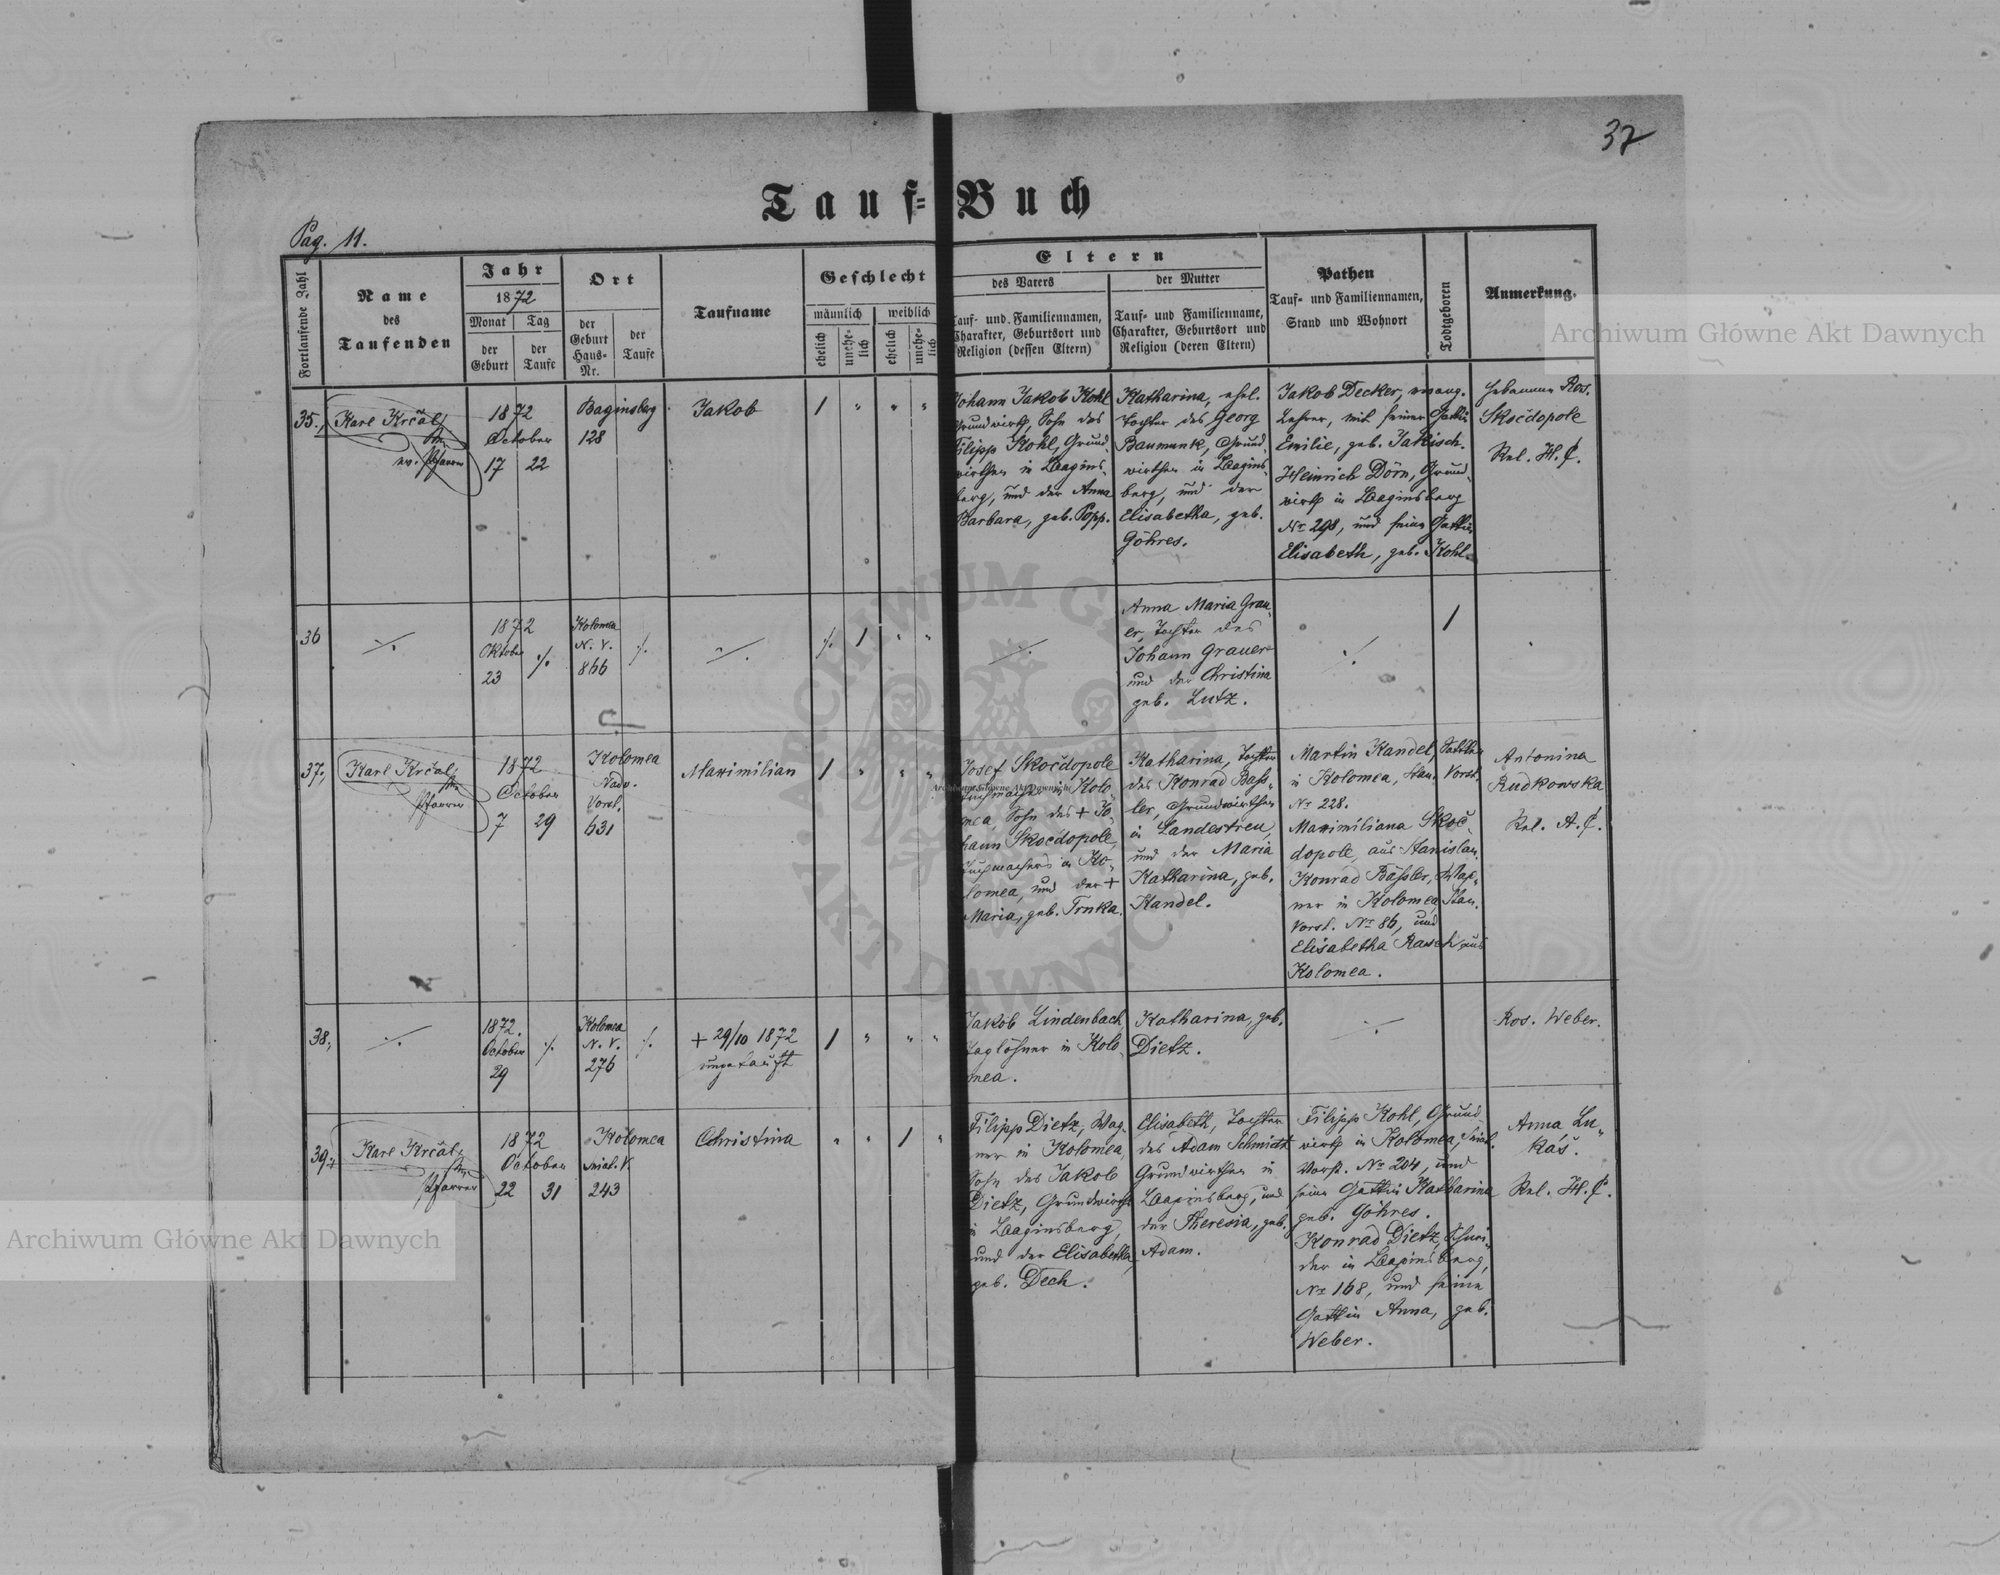 37
Tauf-Buch
Pag. 11.
Fortlaufende Zahl
Name
des
Taufenden
Jahr
1872
Monat
Tag
der
Geburt
der
Taufe
Ort
der
Geburt
Haus-
Nr.
der
Taufe
Taufname
Geschlecht
männlich
weiblich
ehelich
unehe-
lich
ehelich
unehe-
lich
Eltern
des Vaters
der Mutter
Tauf- und Familiennamen,
Charakter, Geburtsort und
Religion (dessen Eltern)
Tauf- und Familienname,
Charakter, Geburtsort und
Religion (deren Eltern)
Pathen
Tauf- und Familiennamen,
Stand und Wohnort
Todtgeboren
Anmerkung.
35.,
Karl Krčal,
ev. Pfarrer
1872
October
17
22
Baginsberg
128
Jakob
/ " " "
Johann Jakob Kohl
Grundwirth, Sohn des
Filipp Kohl, Grund
wirthen in Bagins-
berg, und der Anna
Barbara, geb. Popp.
Katharina, ehel.
Tochter des Georg
Baumunk, Grund
wirthen in Bagins-
berg, und der
Elisabetha, geb.
Göhres.
Jakob Decker, evang.
Lehrer, mit seiner Gattin
Emilie, geb. Jakisch.
Heinrich Dörn, Grund-
wirth in Baginsberg
Nr 298, und seine Gattin
Elisabeth, geb. Kohl
Hebamme Ros.
Skočdopole
Rel. H. C.
36
./.
1872
Oktober
23
./.
Kolomea
N. V.
866
./.
./.
./. / " "
./.
Anna Maria Grau-
er, Tochter des
Johann Grauer
und der Christina
geb. Lutz.
./.
/
37.,
Karl Krčal,
Pfarrer
1872
October
7
29
Kolomea
Nadv.
Vorst.
631
Maximilian
/ " " "
Josef Skočdopole
Tuchmacher in Kolo-
mea, Sohn des + Jo-
hann Skočdopole,
Tuchmachers in Ko-
lomea, und der +
Maria, geb. Trnka.
Katharina, Tochter
des Konrad Bass-
ler, Grundwirthen
in Landestreu,
und der Maria
Katharina, geb.
Kandel.
Martin Kandel, Sattler
in Kolomea, Stan. Vorst.
Nr 228.
Maximiliana Skoč-
dopole, aus Stanislau.
Konrad Bässler, Wag-
ner in Kolomea, Stan.
Vorst. Nr 86, und
Elisabetha Rasch aus
Kolomea.
Antonina
Rudkowska
Rel. A. C.
38.,
./.
1872.
October
29
./.
Kolomea
N. V.
276
./.
+ 29/10 1872
ungetauft
/ " " "
Jakob Lindenbach
Taglöhner in Kolo-
mea.
Katharina, geb.
Dietz.
./.
Ros. Weber.
39.,
Karl Krčal,
Pfarrer
1872
October
22
31
Kolomea
Sniat. V.
243
Christina
" " / "
Filipp Dietz, Wag-
ner in Kolomea,
Sohn des Jakob
Dietz, Grundwirth
in Baginsberg,
und der Elisabetha,
geb. Dech.
Elisabeth, Tochter
des Adam Schmidt
Grundwirthen in
Baginsberg, und
der Theresia, geb.
Adam.
Filipp Kohl, Grund
wirth in Kolomea, Sniat.
Vorst. Nr 204, und
seine Gattin Katharina
geb. Göhres.
Konrad Dietz, Schnei-
der in Baginsberg,
Nr 168, und seine
Gattin Anna, geb.
Weber.
Anna Lu-
káš.
Rel. H. C.
Archiwum Główne Akt Dawnych
Archiwum Główne Akt Dawnych
Archiwum Główne Akt Dawnych
ARCHIWUM GŁÓWNE AKT DAWNYCH